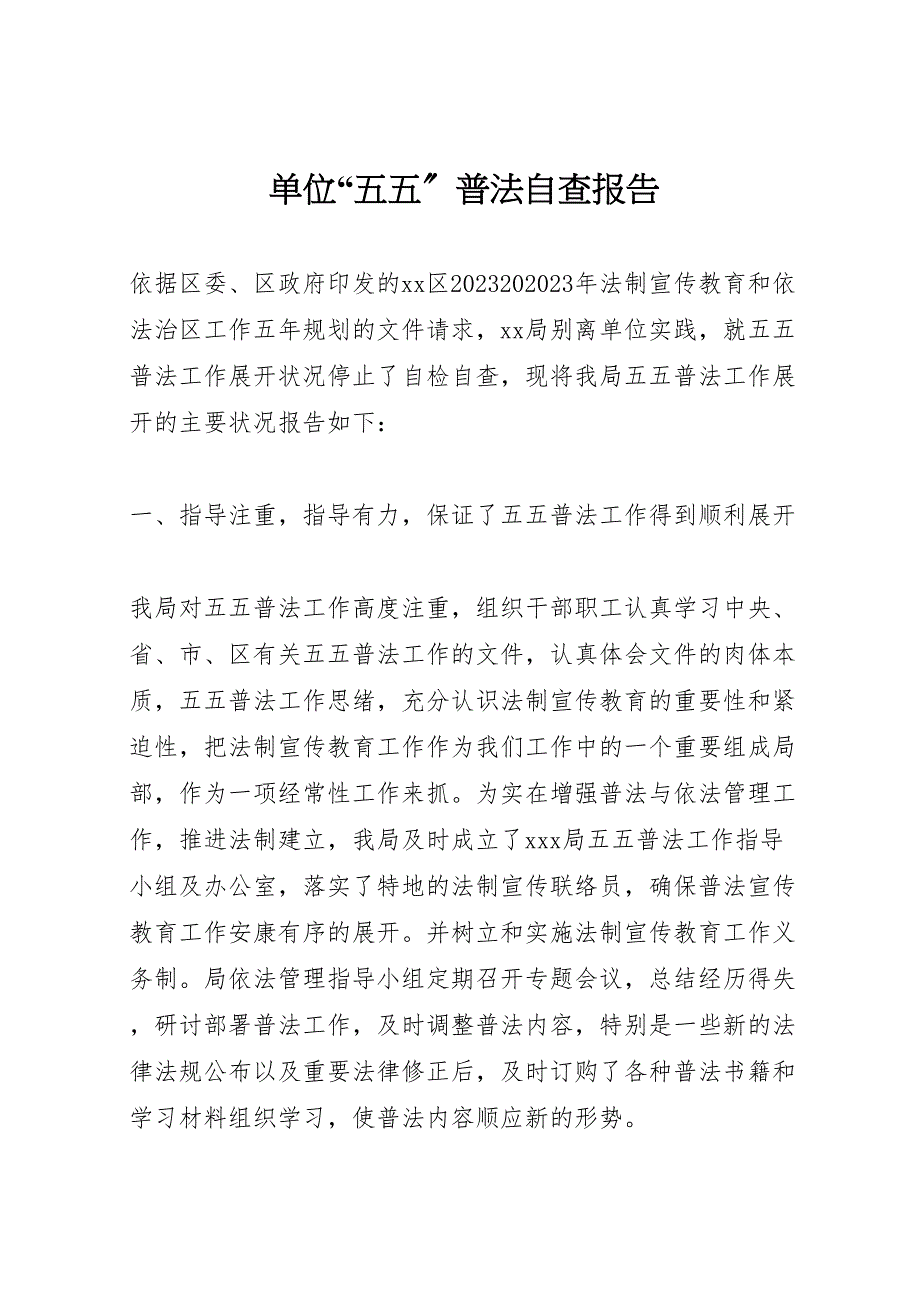 单位“五五〞普法自查报告
依据区委、区政府印发的xx区2023202023年法制宣传教育和依
法治区工作五年规划的文件请求，xx局别离单位实践，就五五
普法工作展开状况停止了自检自查，现将我局五五普法工作展
开的主要状况报告如下：
一、指导注重，指导有力，保证了五五普法工作得到顺利展开
我局对五五普法工作高度注重，组织干部职工认真学习中央、
省、市、区有关五五普法工作的文件，认真体会文件的肉体本
质，五五普法工作思绪，充分认识法制宣传教育的重要性和紧
迫性，把法制宣传教育工作作为我们工作中的一个重要组成局
部，作为一项经常性工作来抓。为实在增强普法与依法管理工
作，推进法制建立，我局及时成立了xxx局五五普法工作指导
小组及办公室，落实了特地的法制宣传联络员，确保普法宣传
教育工作安康有序的展开。并树立和实施法制宣传教育工作义
务制。局依法管理指导小组定期召开专题会议，总结经历得失
，研讨部署普法工作，及时调整普法内容，特别是一些新的法
律法规公布以及重要法律修正后，及时订购了各种普法书籍和
学习材料组织学习，使普法内容顺应新的形势。